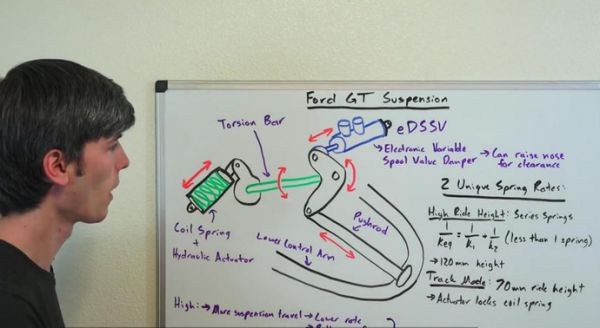 Ford GT Suspension
Torsion Bar
eDSSV
→ Electronic Variable
Spool Valve Damper
→ Can raise nose
for clearance
Coil Spring
+
Hydraulic Actuator
Lower Control Arm
Pushrod
2 Unique Spring Rates:
High Ride Height: Series Springs
1/Keq = 1/k1 + 1/k2 (less than 1 spring)
→ 120mm height
Track Mode: 70mm ride height
→ Actuator locks coil spring
High: → More suspension travel → Lower rate